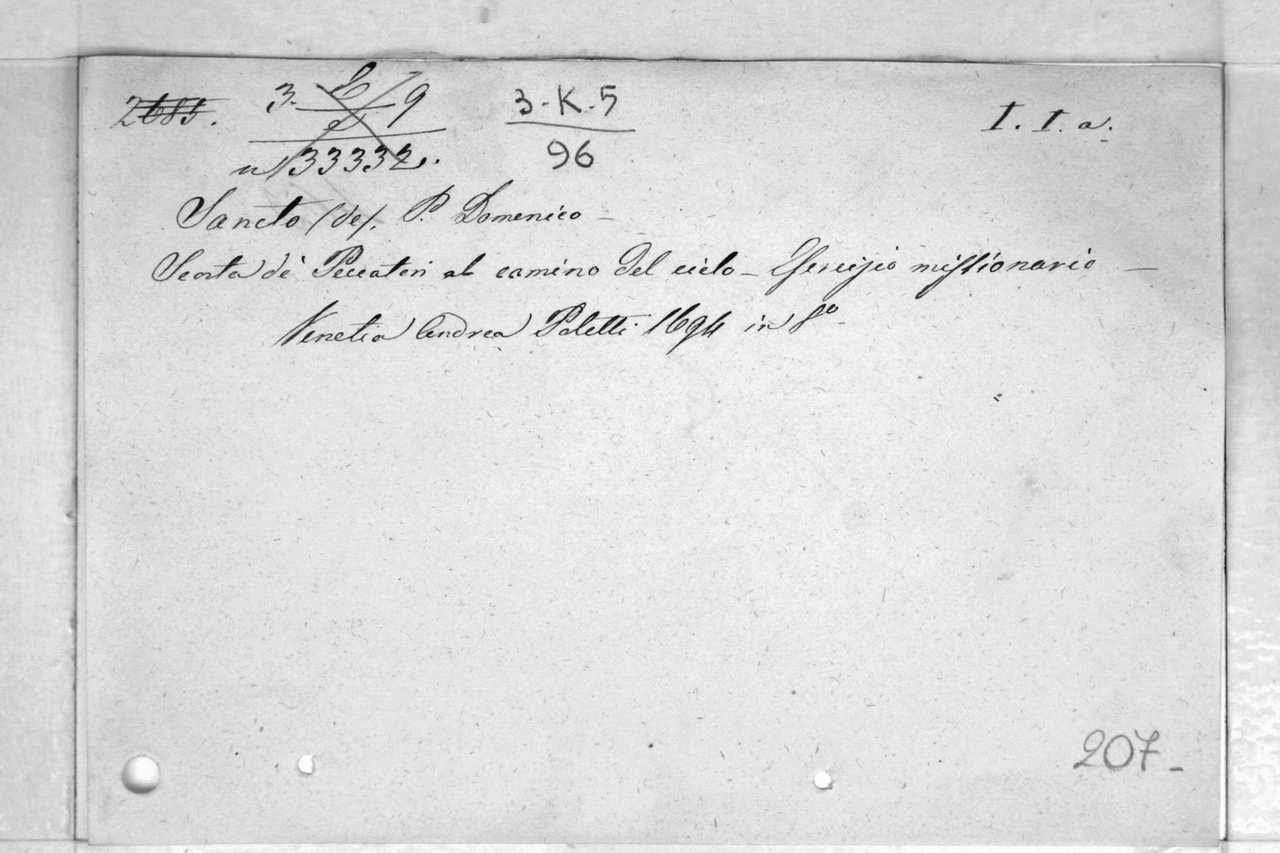 2685.
3. L 9
d
n 33332.
3-K-5
96
I. I. a.
Sancto (de). P. Domenico -
Scorta de' Peccatori al camino del cielo - Esercizio missionario -
Venetia Andrea Poletti 1694 in 8º
207-